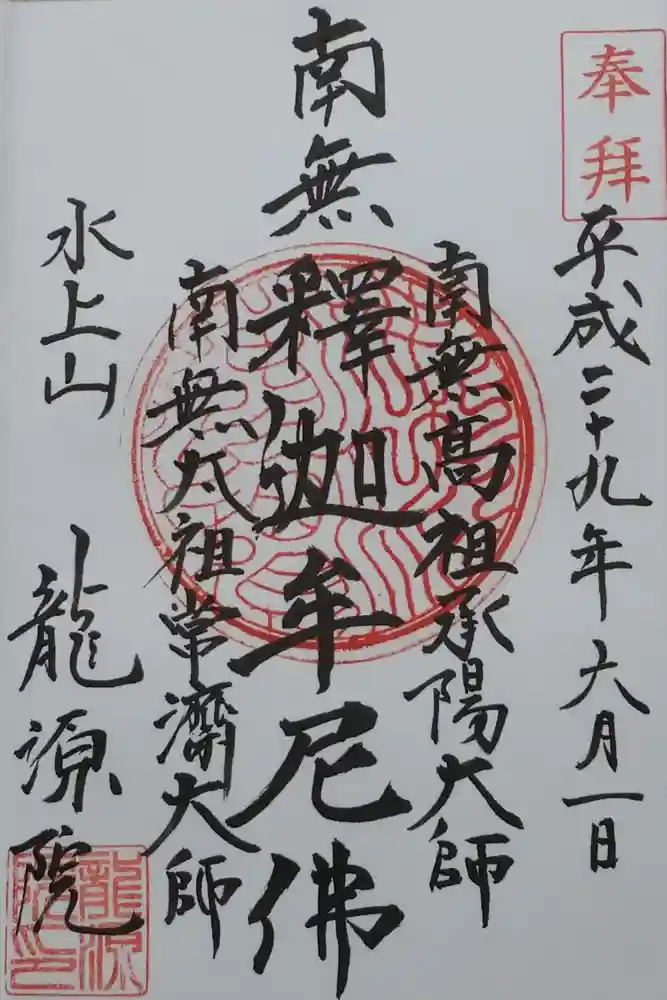 奉拜
平成二十九年六月一日
南無高祖承陽大師
南無釋迦牟尼佛
南無太祖常濟大師
水上山
龍源院
龍源院印